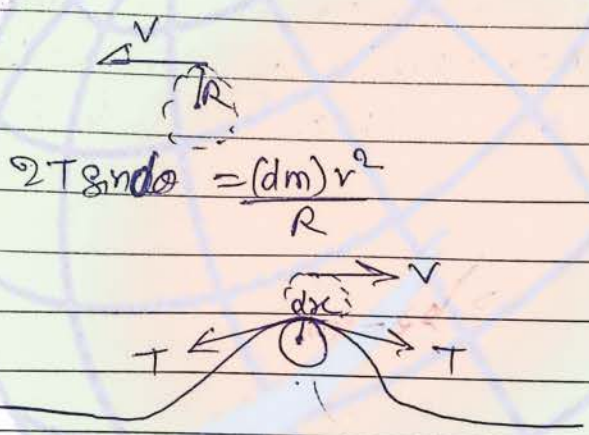 V
R
2T sindθ = (dm)v²
R
V
dx
T T